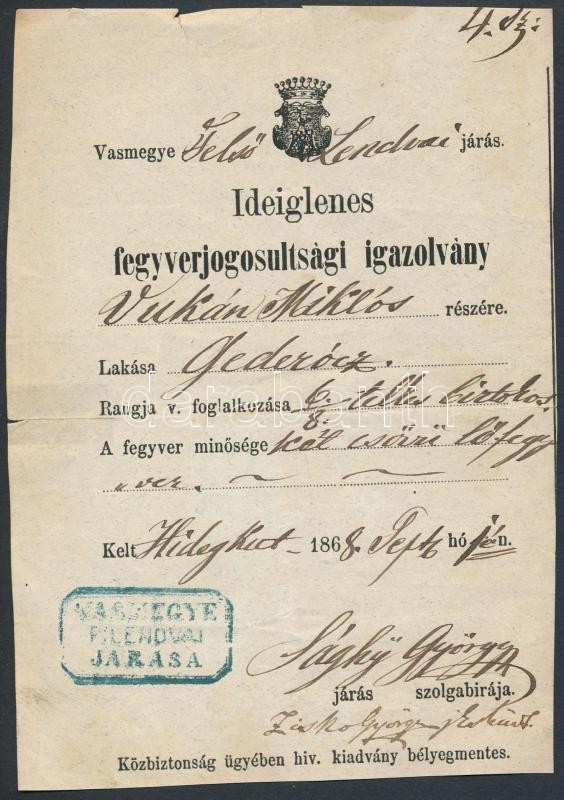 4. sz:
Vasmegye Felső Lendvai járás.
Ideiglenes
fegyverjogosultsági igazolvány
Vukán Miklós részére.
Lakása Gederócz.
Rangja v. foglalkozása 6/8 telkes birtokos.
A fegyver minősége két csövű lőfegy
„ver.
Kelt Hidegkut 1868. Sept hó 1én.
VASMEGYE
F. LENDVAI
JÁRÁSA
Sághy György
járás szolgabirája.
György
Közbiztonság ügyében hiv. kiadvány bélyegmentes.
darabanth